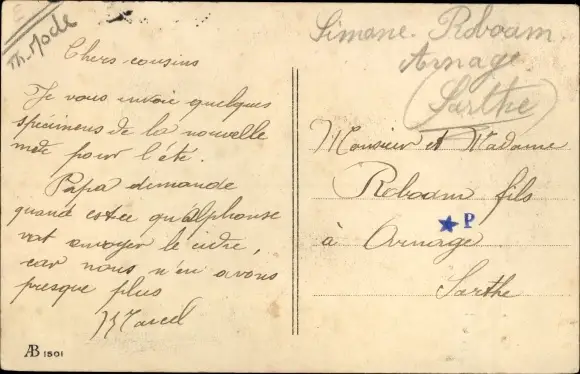 Th. Mode
Chers cousins
Je vous envoie quelques
spécimens de la nouvelle
mode pour l'été.
Papa demande
quand estce qu'alphonse
vat envoyer le cidre,
car nous n'en avons
presque plus
Marcel
AB 1501
Simone. Roboam.
Arnage
(Sarthe)
Monsieur et Madame
Roboam fils
P
à Arnage
Sarthe